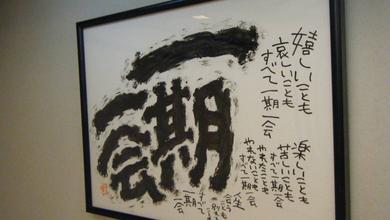 嬉しいことも
哀しいことも
すべて一期一会
楽しいことも
苦しいことも
すべて一期一会
やれたことも
やれないことも
すべて一期一会
人生
すべて
一期
一会
一期
一会